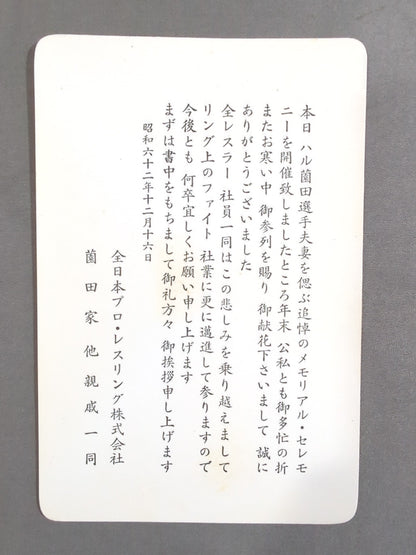 本日 ハル薗田選手夫妻を偲ぶ追悼のメモリアル・セレモ
ニーを開催致しましたところ年末 公私とも御多忙の折
またお寒い中 御参列を賜り 御献花下さいまして 誠に
ありがとうございました
全レスラー 社員一同はこの悲しみを乗り越えまして
リング上のファイト 社業に更に邁進して参りますので
今後とも 何卒宜しくお願い申し上げます
まずは書中をもちまして御礼方々 御挨拶申し上げます
昭和六十二年十二月十六日
全日本プロ・レスリング株式会社
薗田家他親戚一同